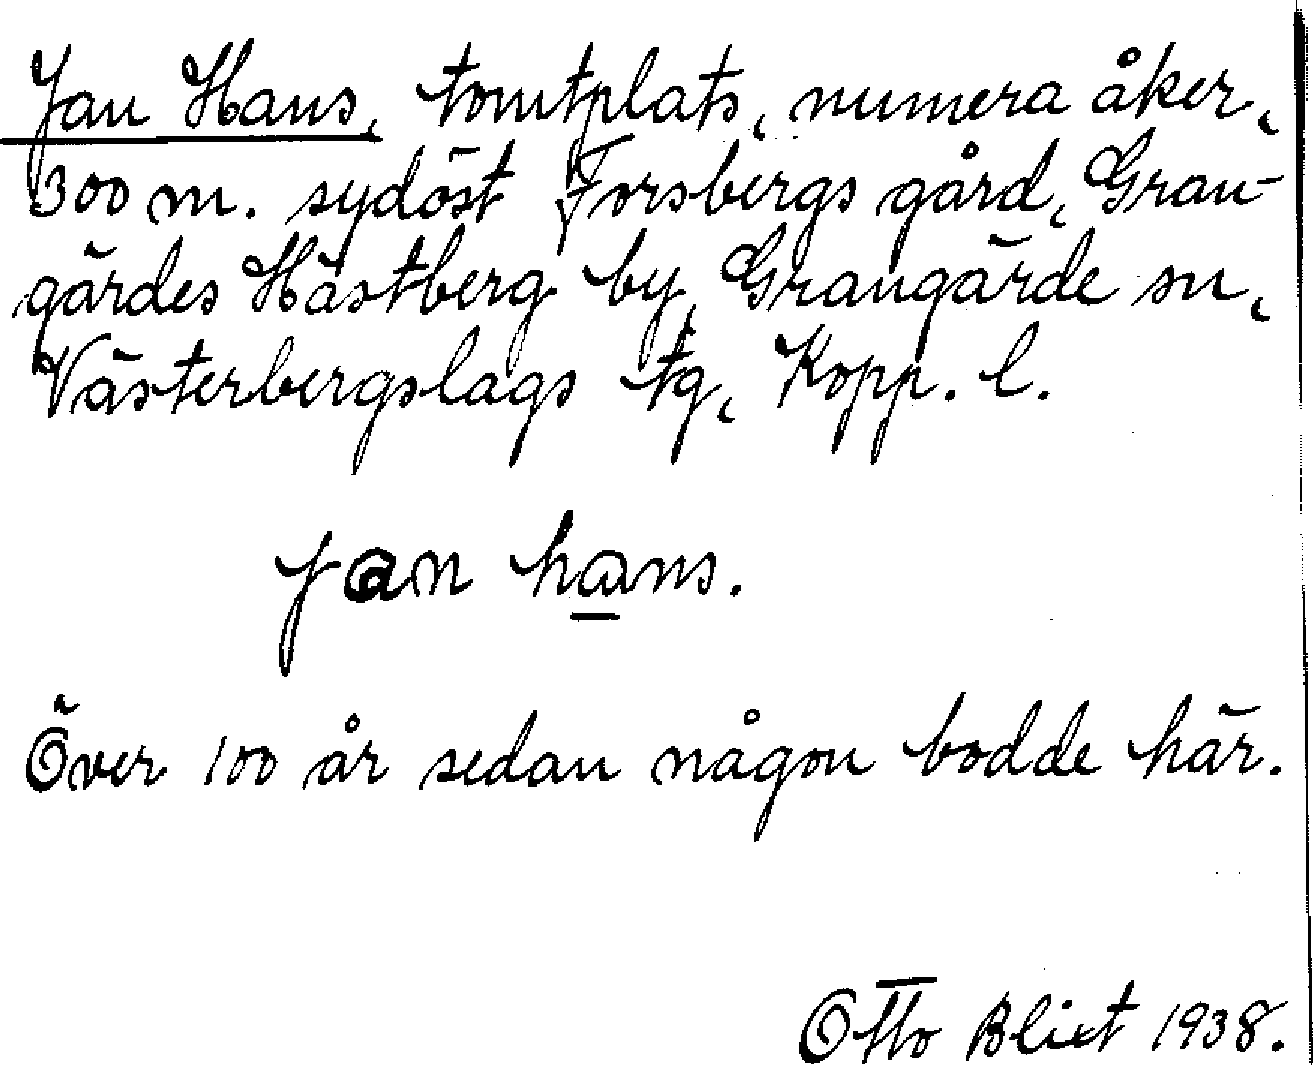 Jan Hans, tomtplats, numera åker,
300 m. sydöst Forsbergs gård, Gran-
gärdes Hästberg by, Grangärde sn,
Västerbergslags tg, Kopp. l.
jan hans.
Över 100 år sedan någon bodde här.
Otto Blixt 1938.